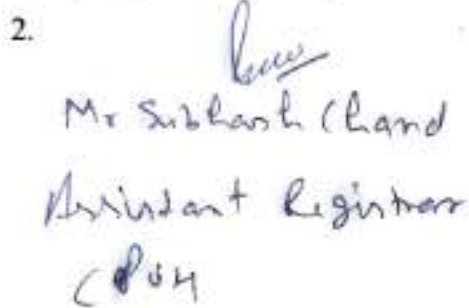 2.
Mr Subhash Chand
Assistant Registrar